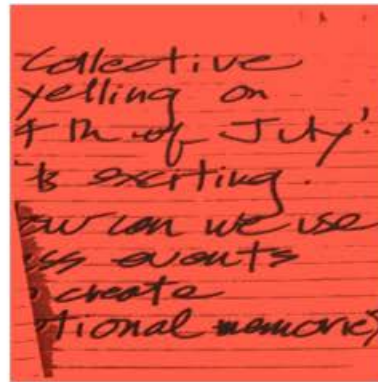 Collective
yelling on
4th of July'
is exciting.
ow can we use
ss events
create
tional memories